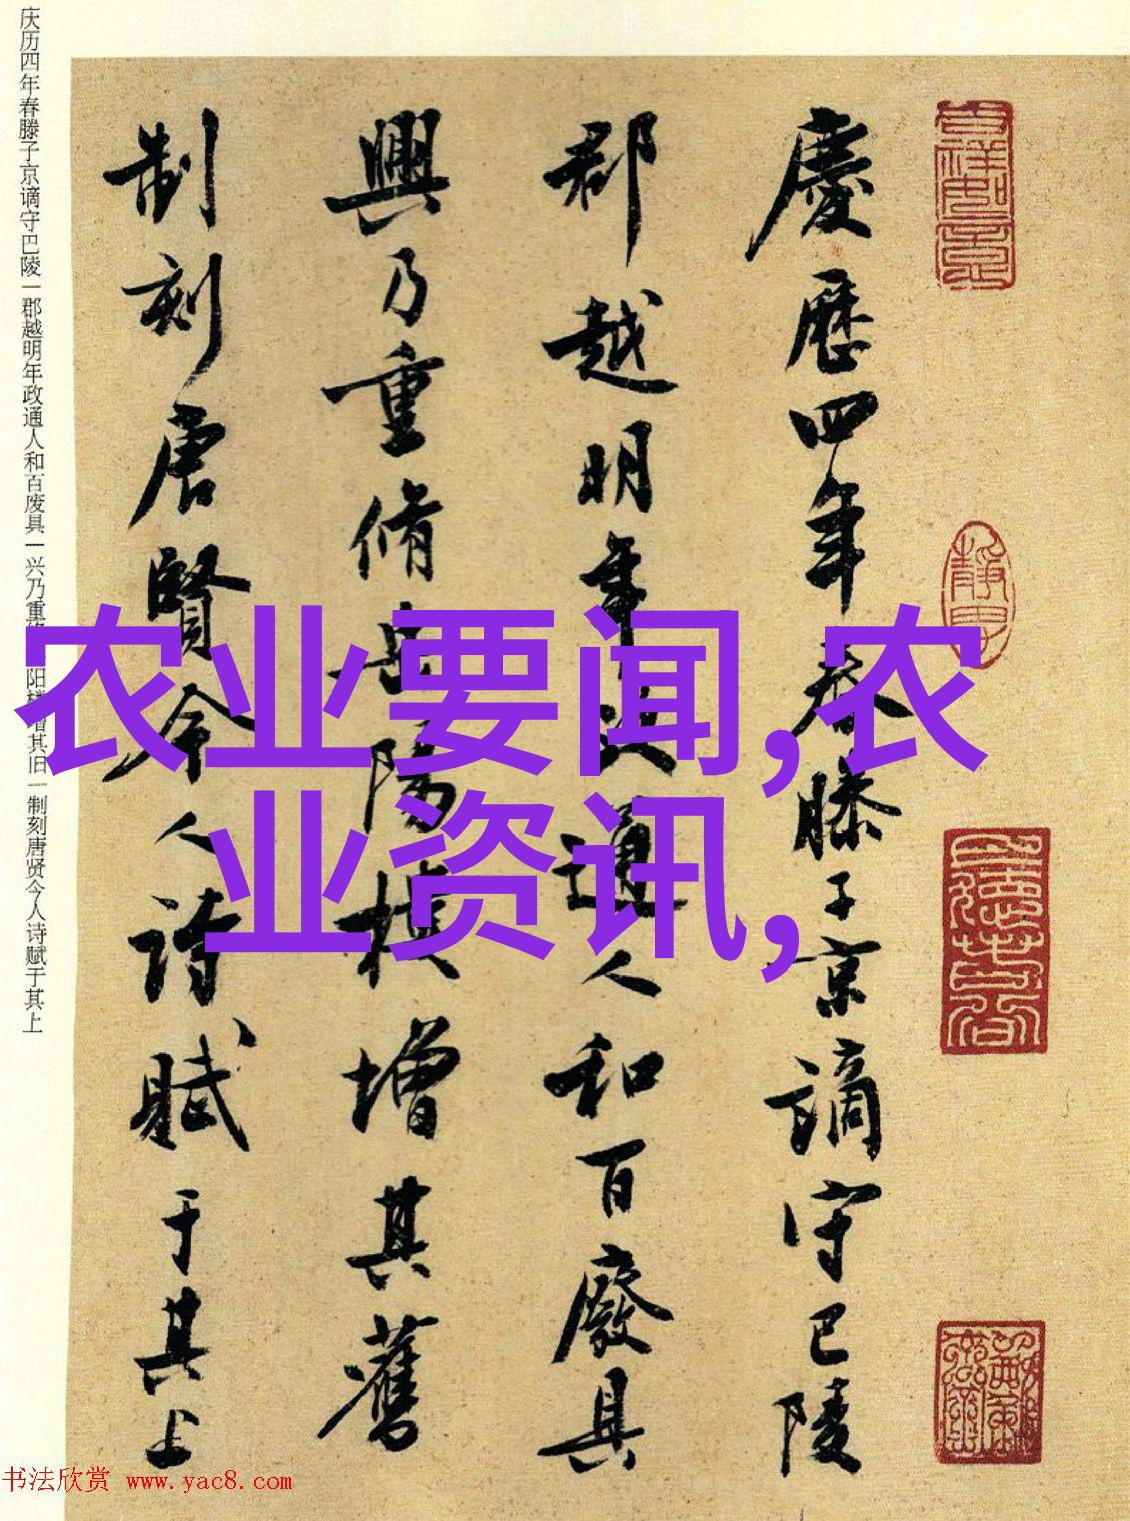 慶曆四年春滕子京謫守巴陵
郡越明年政通人和百廢具
興乃重脩岳陽樓增其舊
制刻唐賢今人詩賦于其上
庆历四年春滕子京谪守巴陵一郡越明年政通人和百废具一兴乃重修 阳楼增其旧一制刻唐贤今人诗赋于其上
农业要闻,农
业资讯,
书法欣赏 www.yac8.com